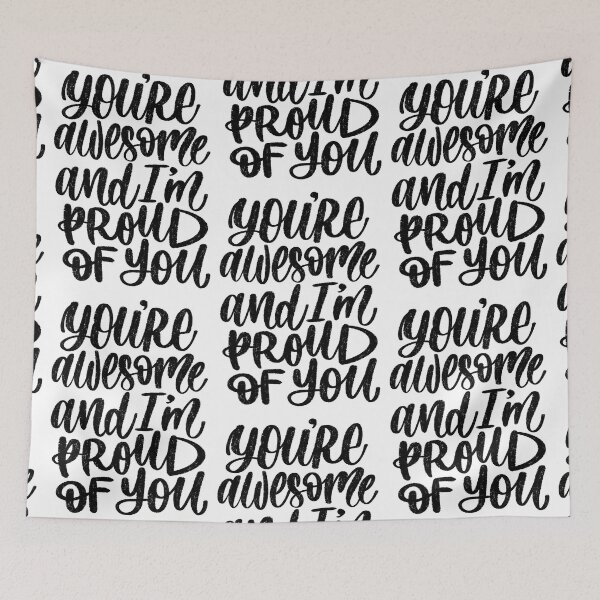 you're
awesome
and I'm
PROUD
OF you
you're
awesome
and I'm
PROUD
OF you
and I'm
PROUD
OF you
you're
awesome
and I'm
PROUD
OF you
you're
awesome
and I'm
you're
awesome
and I'm
PROUD
OF you
you're
awesome
and I'm
PROUD
OF you